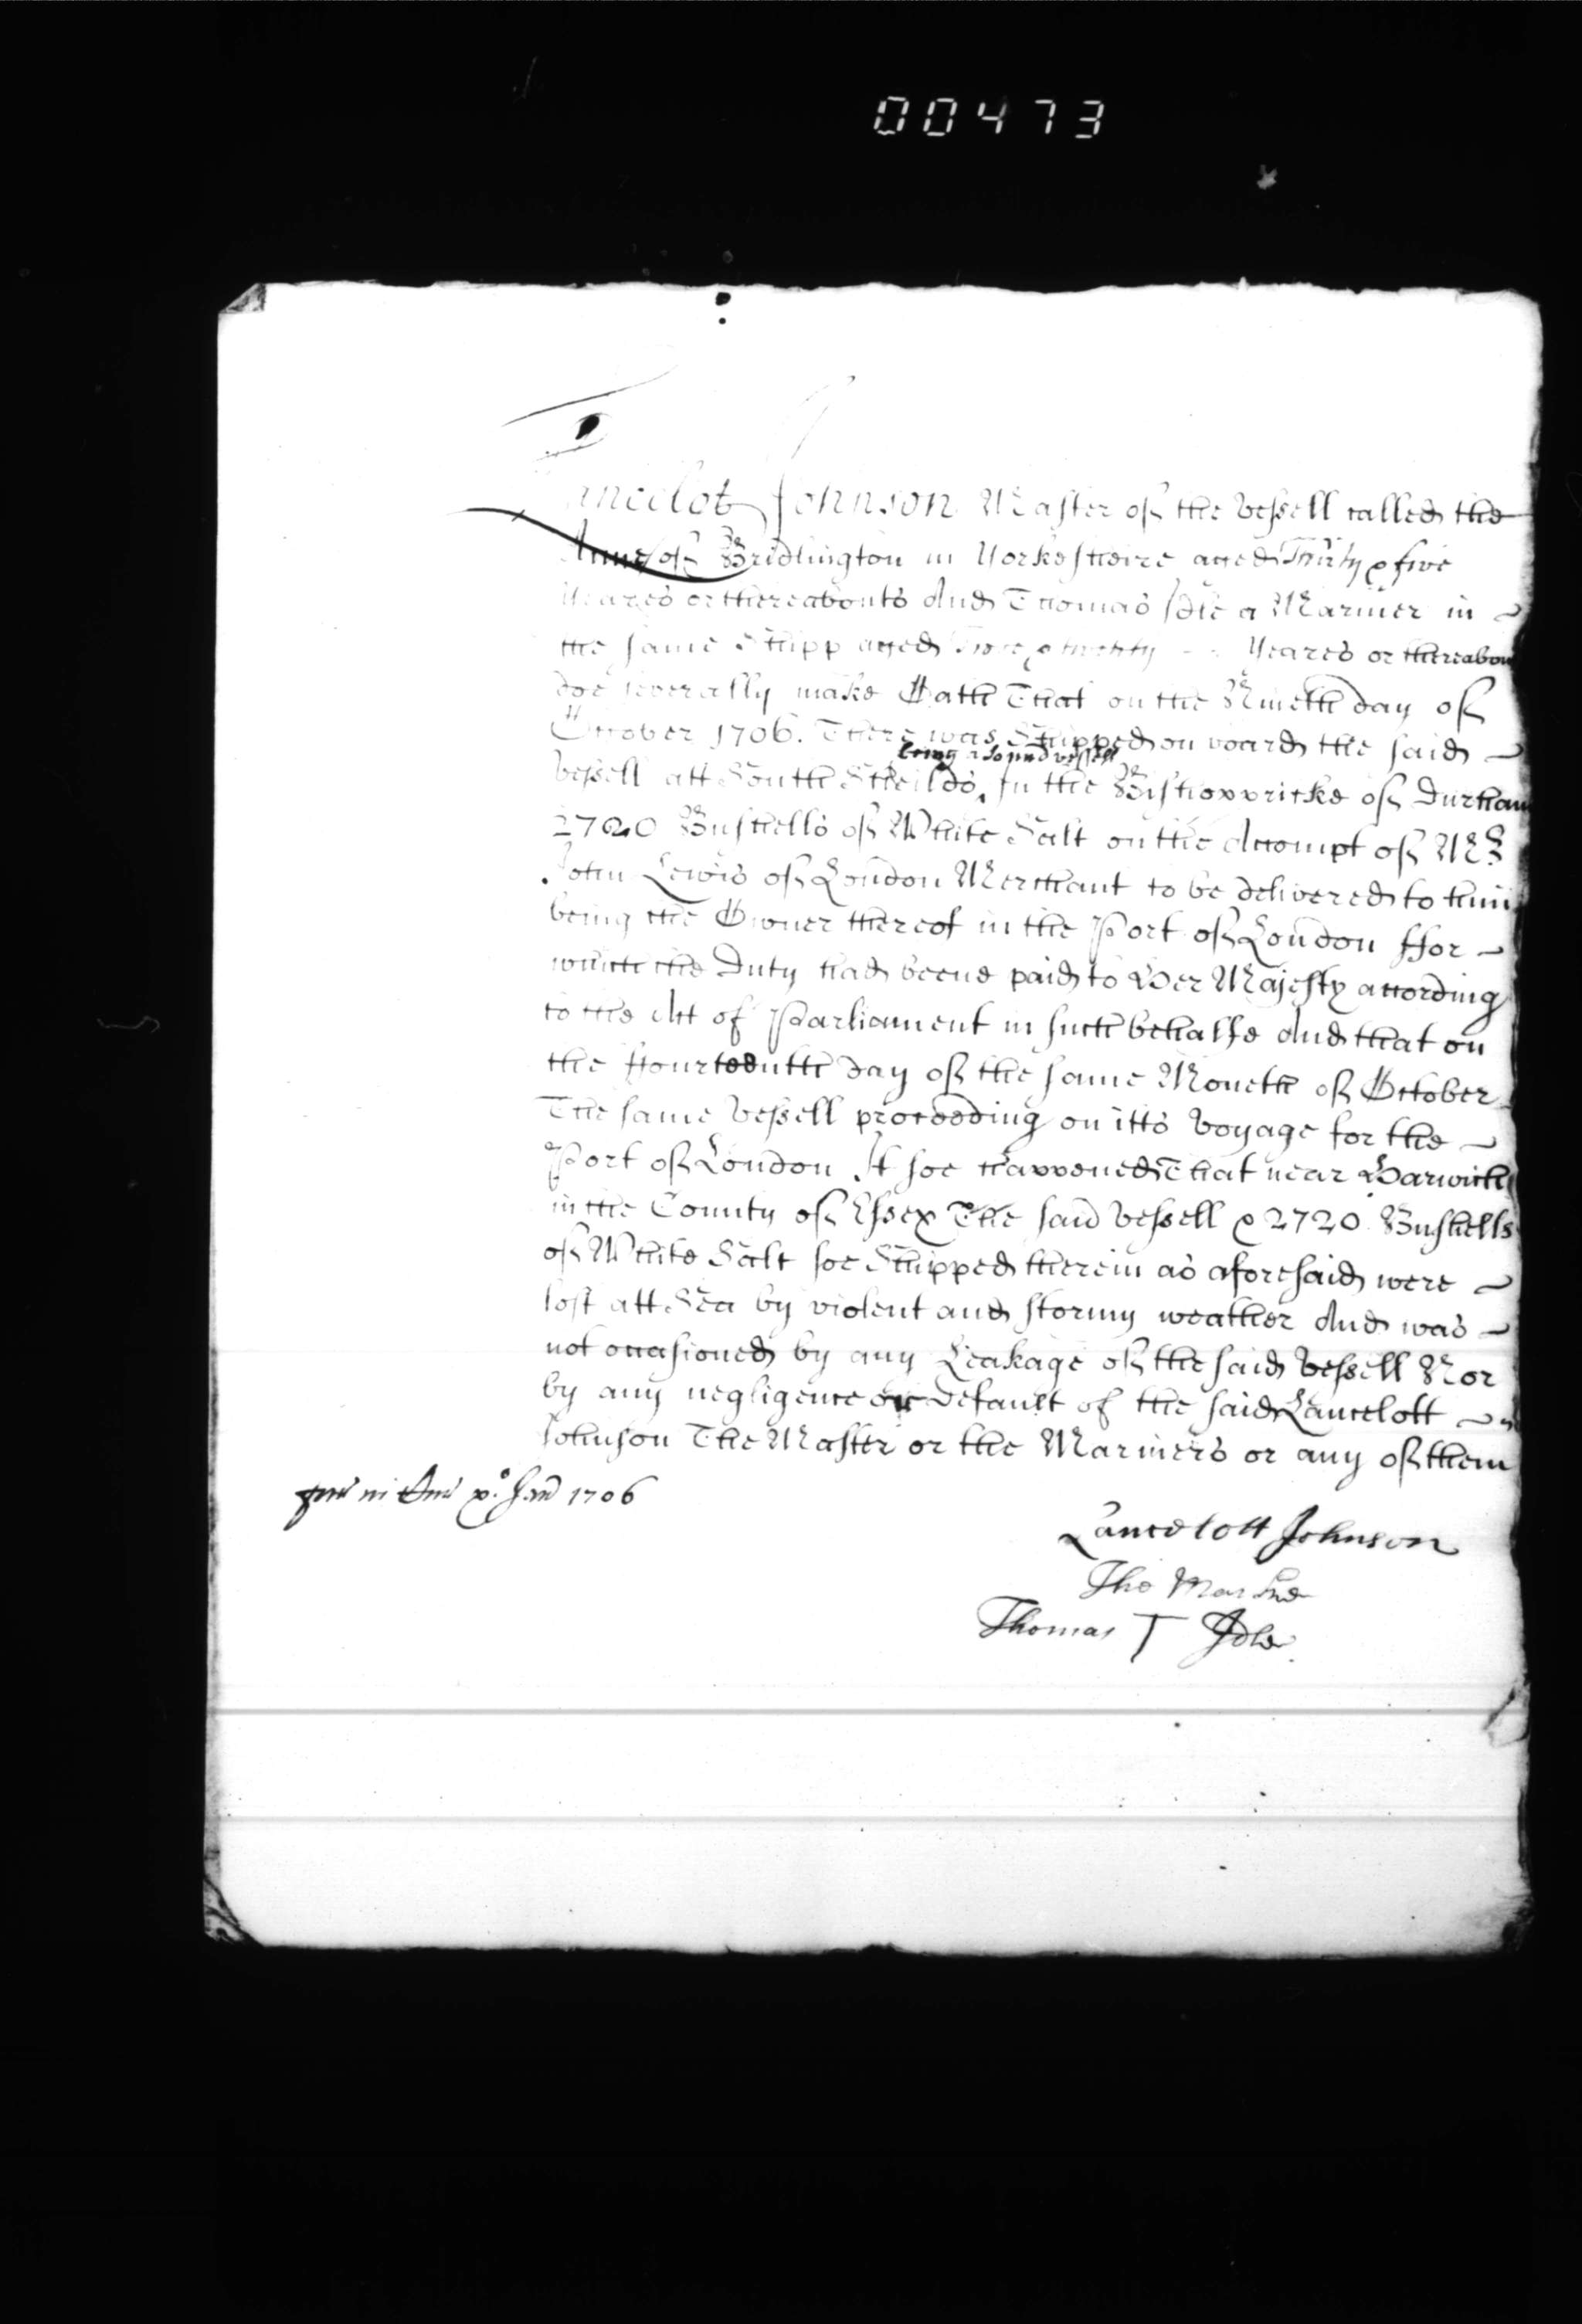 00473
Lancelot Johnson Master of the vessell called the
Anne of Bridlington in Yorkesheire aged Thirty & five
Yeares or thereabouts And Thomas Idle a Mariner in
the same Shipp aged twenty Yeares or thereabou
doe severally make Oath That on the Nineth day of
October 1706. There was Shipped on board the said
being a sound vessell
vessell att South Sheilds, In the Bishoppricke of Durham
2720 Bushells of White Salt on the Accompt of Mr
John Lewis of London Merchant to be delivered to him
being the Owner thereof in the Port of London ffor
which the Duty had beene paid to Her Majesty according
to the Act of Parliament in such behalfe And that on
the ffourteenth day of the same Moneth of October
The same vessell proceeding on itts voyage for the
Port of London It soe happened That near Harwich
in the County of Essex The said vessell & 2720 Bushells
of White Salt soe Shipped therein as aforesaid were
lost att Sea by violent and stormy weather And was
not occasioned by any Leakage of the said vessell Nor
by any negligence or default of the said Lancelott
Johnson The Master or the Mariners or any of them
Jan 1706
Lancelott Johnson
The Marke
Thomas T Idle